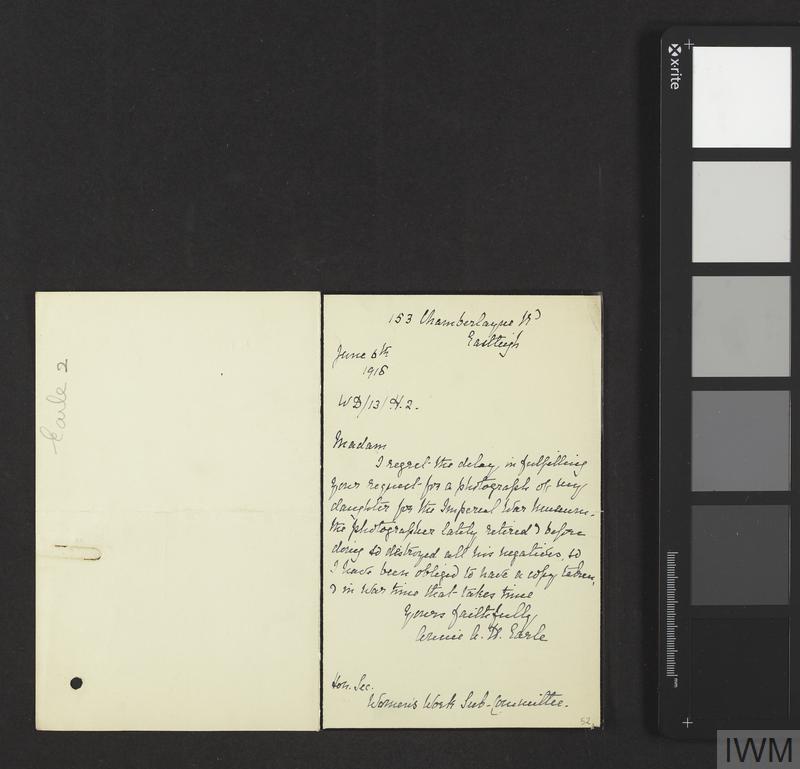 153 Chamberlayne Rd
Eastleigh
June 6th
1918
WD/13/H.2.
Madam
I regret the delay, in fulfilling
your request for a photograph of my
daughter for the Imperial War Museum.
the photographer lately retired & before
doing so destroyed all his negatives, so
I have been obliged to have a copy taken,
& in War time that takes time
Yours faithfully
Annie A. W. Earle
Hon. Sec.
Women's Work Sub-Committee.
52
Earle 2
x-rite
mm
IWM